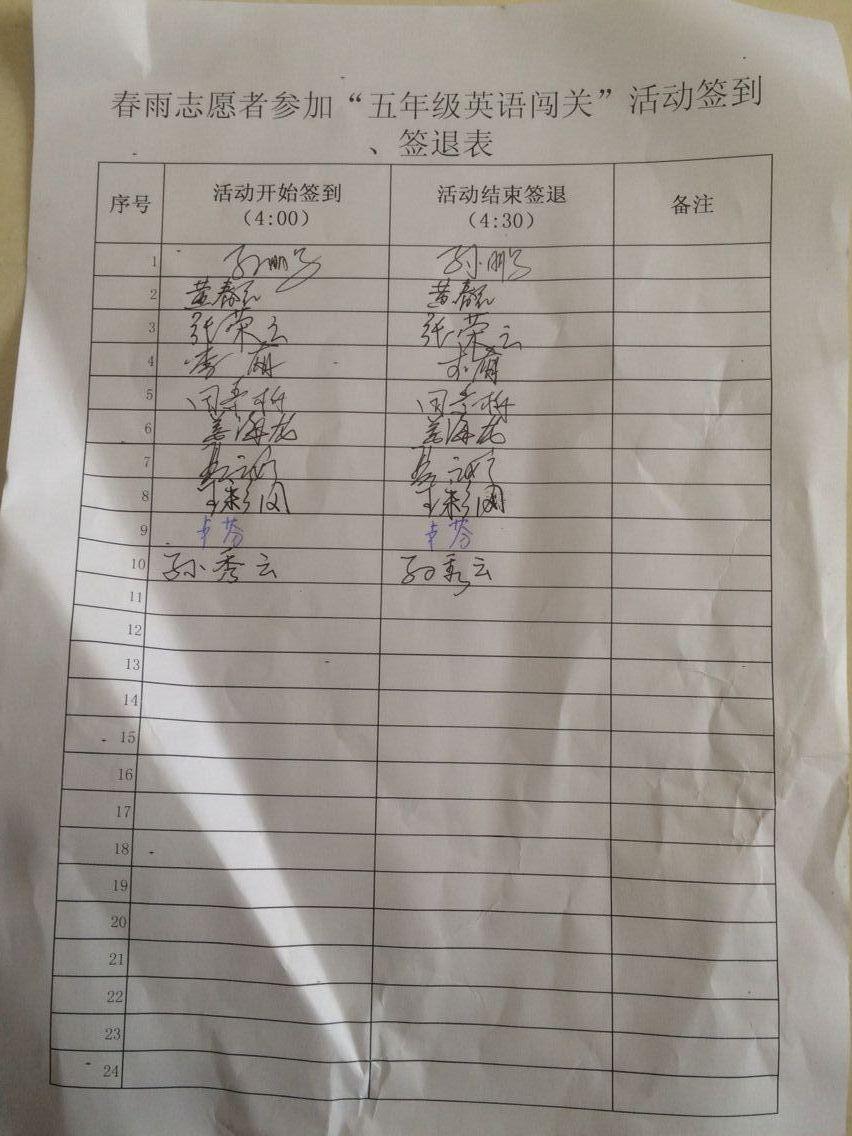 春雨志愿者参加“五年级英语闯关”活动签到
、签退表
序号 活动开始签到 (4:00) 活动结束签退 (4:30) 备注
1 孙鹏 孙鹏
2 黄 黄
3 张荣云 张荣云
4 李萌 李萌
5
6 姜海龙 姜海龙
7
8 王彩闪 王彩
9 卢芬 卢芬
10 孙秀云 孙秀云
11
12
13
14
15
16
17
18
19
20
21
22
23
24